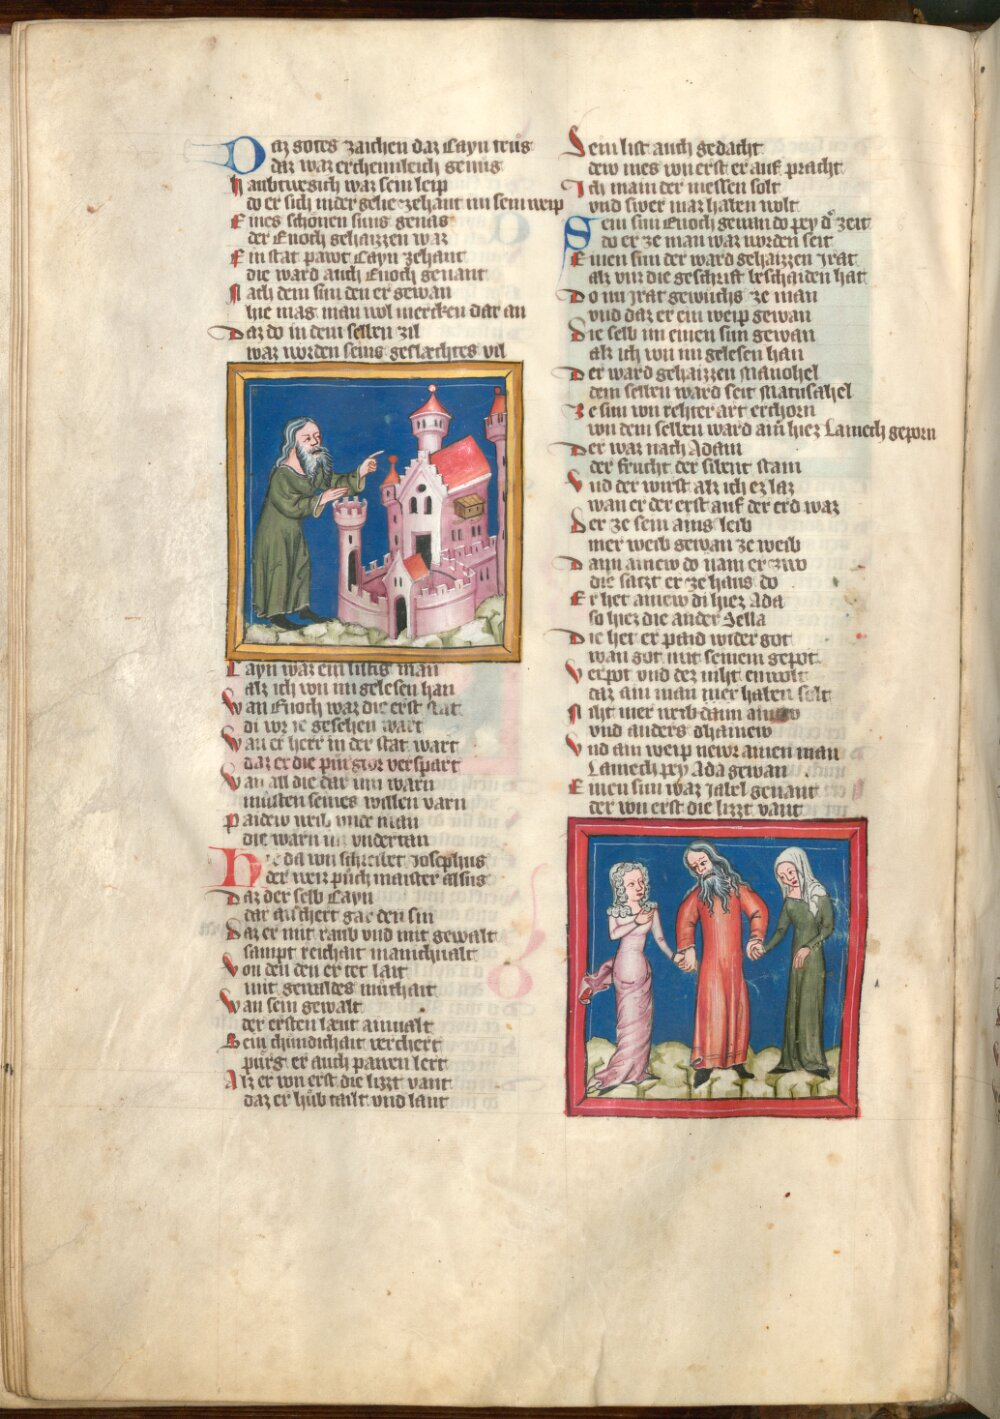 Daz gotes zaichen daz Cayn trüg
daz waz erchennleich genüg
haubtwegich waz sein leip
do er sich nider gelie zehant im sein weip
Eines schönen suns genas
der Enoch gehaizzen waz
Ein stat pawot Cayn zehant
die ward auch Enoch genant
Nach dem sun den er gewan
hie mag man wol mercken dar an
Daz do in dem selben zil
waz worden seins geslæchtes vil
Cayn waz ein listig man
alz ich von im gelesen han
Wan Enoch waz die erst stat
di vor ie gesehen wart
Wan er herr in der stat wart
daz er die pürgtor verspart
Wan all die dar inn warn
müsten seines willen varn
Paidew weib vnde man
die warn im vndertan
Hie da von schreibet Josephus
der weiz püch maister alsus
Daz der selb Cayn
dar an chert gar den sin
Daz er mit raub vnd mit gewalt
sampt reichait manichualt
Von den den er tet lait
mit gewaldes müthait
Wan sein gewalt
der ersten læut ainualt
Sein chündichait verchert
pürg er auch pawen lert
Alz er von erst die lizzt vant
daz er hüb tailt vnd lant
Sein list auch gedacht
dew mes von erst er auf pracht
Ich main der messen solt
vnd swer maz haben wolt
Sein sun Enoch gewan do pey der zeit
do er ze man waz worden seit
Einen sun der ward gehaizzen Jrat
alz vnz die geschrift beschaiden hat
Do im Jrat gewüchs ze man
vnd daz er ein weip gewan
Die selb im einen sun gewan
alz ich von im gelesen han
Der ward gehaizzen Mauohel
dem selben ward seit Matusahel
Ze sun von rehter art erchorn
von dem selben ward ain hiez Lamech geporn
Der waz nach Adam
der frucht der sibent stam
Vnd der wirst alz ich ez laz
wan er der erst auf der erd waz
Der ze sein ains leib
mer weib gewan ze weib
Dann ainew do nam er zwo
die satzt er ze haus do
Er het ainew di hiez Ada
so hiez die ander Sella
Die het er paid wider got
wan got mit seinem gepot
Verpot vnd dez niht enwolt
daz ain man mer haben solt
Niht mer weib dann ainew
vnd anders dhainew
Vnd ain weip newr ainen man
Lamech pey Ada gewan
Einen sun waz Jabel genant
der von erst die lizzt vant